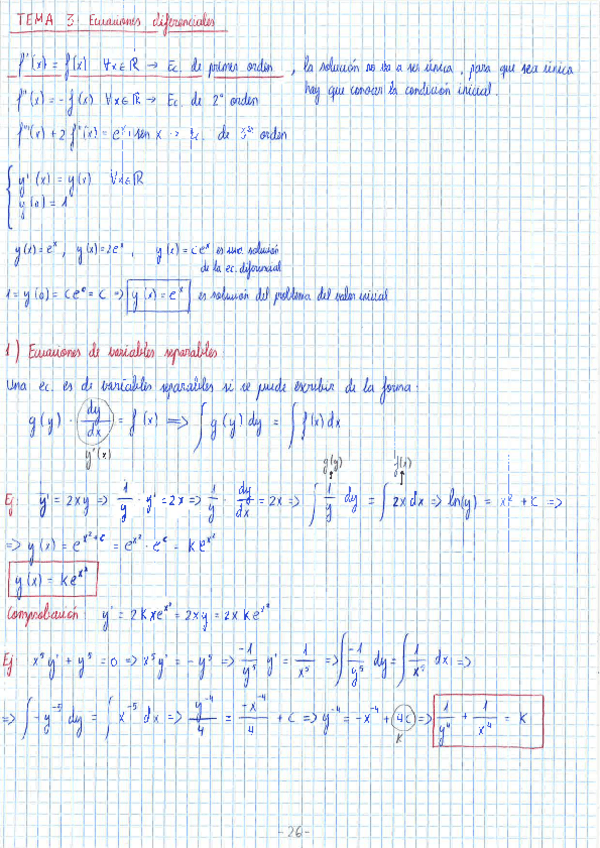 TEMA 3: Ecuaciones diferenciales
f'(x) = f(x) ∀x∈ℝ → Ec. de primer orden , la solución no va a ser única, para que sea única
hay que conocer la condición inicial.
f''(x) = -f(x) ∀x∈ℝ → Ec. de 2º orden
f'''(x) + 2 f'(x) = eˣ + sen x → Ec. de 3er orden
{ y'(x) = y(x) ∀x∈ℝ
y(0) = 1
y(x) = eˣ, y(x) = 2eˣ, y(x) = ceˣ es una solución
de la ec. diferencial
1 = y(0) = ce⁰ = c ⇒ y(x) = eˣ es solución del problema del valor inicial
1) Ecuaciones de variables separables
Una ec. es de variables separables si se puede escribir de la forma:
g(y) · dy/dx = f(x) ⟹ ∫ g(y) dy = ∫ f(x) dx
y'(x)
g(y) f(x)
Ej: y' = 2xy ⇒ 1/y · y' = 2x ⇒ 1/y · dy/dx = 2x ⇒ ∫ 1/y dy = ∫ 2x dx ⇒ ln(y) = x² + c ⇒
⇒ y(x) = e^(x²+c) = e^(x²) · e^c = k e^(x²)
y(x) = k e^(x²)
Comprobación: y' = 2kxe^(x²) = 2xy = 2x ke^(x²)
Ej: x⁵y' + y⁵ = 0 ⇒ x⁵y' = -y⁵ ⇒ -1/y⁵ y' = 1/x⁵ ⇒ ∫ -1/y⁵ dy = ∫ 1/x⁵ dx ⇒
⇒ ∫ -y⁻⁵ dy = ∫ x⁻⁵ dx ⇒ y⁻⁴/4 = -x⁻⁴/4 + c ⇒ y⁻⁴ = -x⁻⁴ + 4c ⇒ 1/y⁴ + 1/x⁴ = k
k
-26-